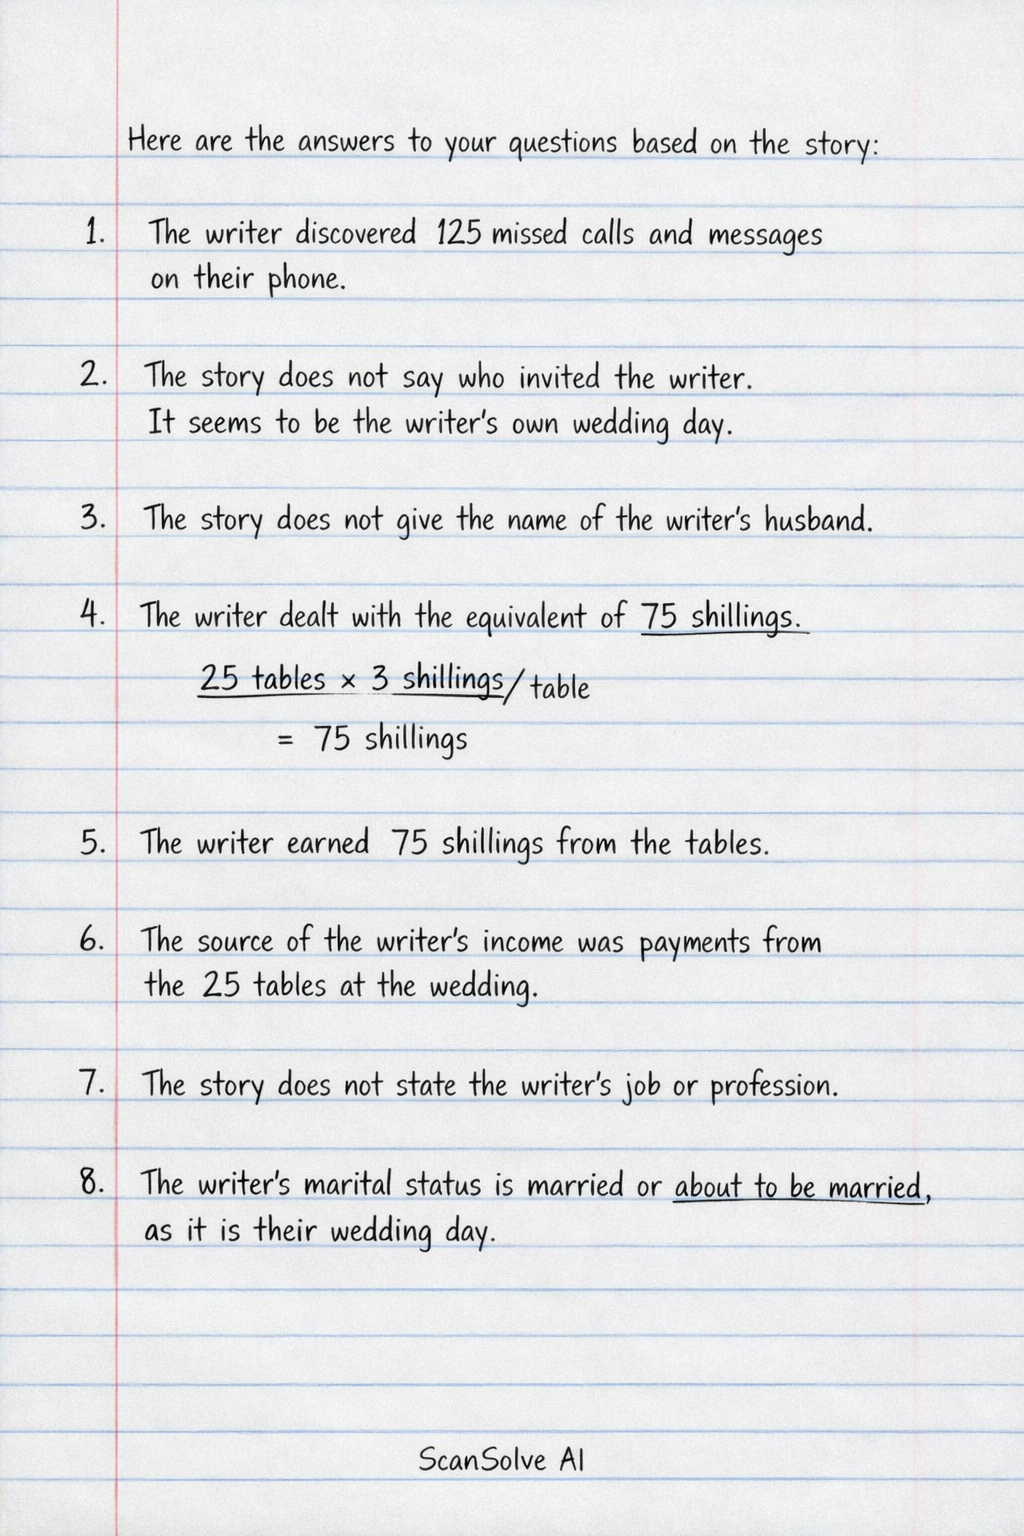 Here are the answers to your questions based on the story:
1. The writer discovered 125 missed calls and messages
on their phone.
2. The story does not say who invited the writer.
It seems to be the writer's own wedding day.
3. The story does not give the name of the writer's husband.
4. The writer dealt with the equivalent of 75 shillings.
25 tables × 3 shillings/table
= 75 shillings
5. The writer earned 75 shillings from the tables.
6. The source of the writer's income was payments from
the 25 tables at the wedding.
7. The story does not state the writer's job or profession.
8. The writer's marital status is married or about to be married,
as it is their wedding day.
ScanSolve AI